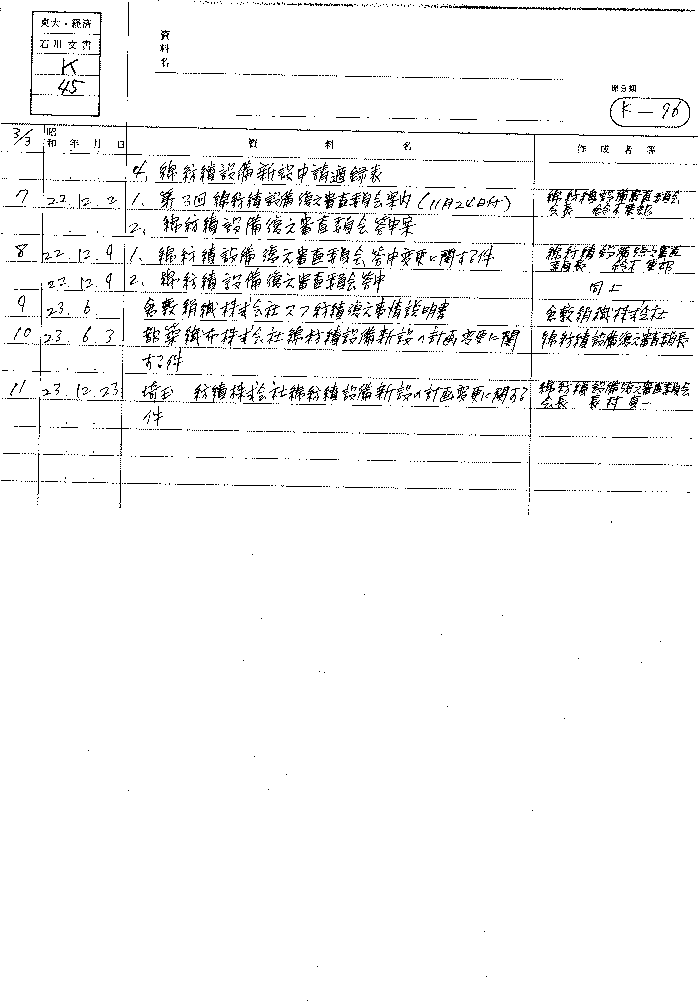 東大・経済
石川文書
K
45
資料名
原分類
K — 96
3/3
昭和 年 月 日 資料名 作成者等
4、綿紡績設備新設申請適録表
7 22 12 2 1、第3回綿紡績設備復元審査委員会案内(11月24日付) 綿紡績設備復元審査委員会
会長
2、綿紡績設備復元審査委員会答申案
8 22 12 9 1、綿紡績設備復元審査委員会答申変更に関する件 綿紡績設備復元審査
委員長
22 12 9 2、綿紡績設備復元審査委員会答申 同上
9 23 6 倉敷絹織株式会社スフ紡績復元事情説明書 倉敷絹織株式会社
10 23 6 3 都築織布株式会社綿紡績設備新設の計画変更に関 綿紡績設備復元審査委員長
する件
11 23 12 23 埼玉 紡績株式会社綿紡績設備新設の計画変更に関する 綿紡績設備復元審査委員会
件 会長